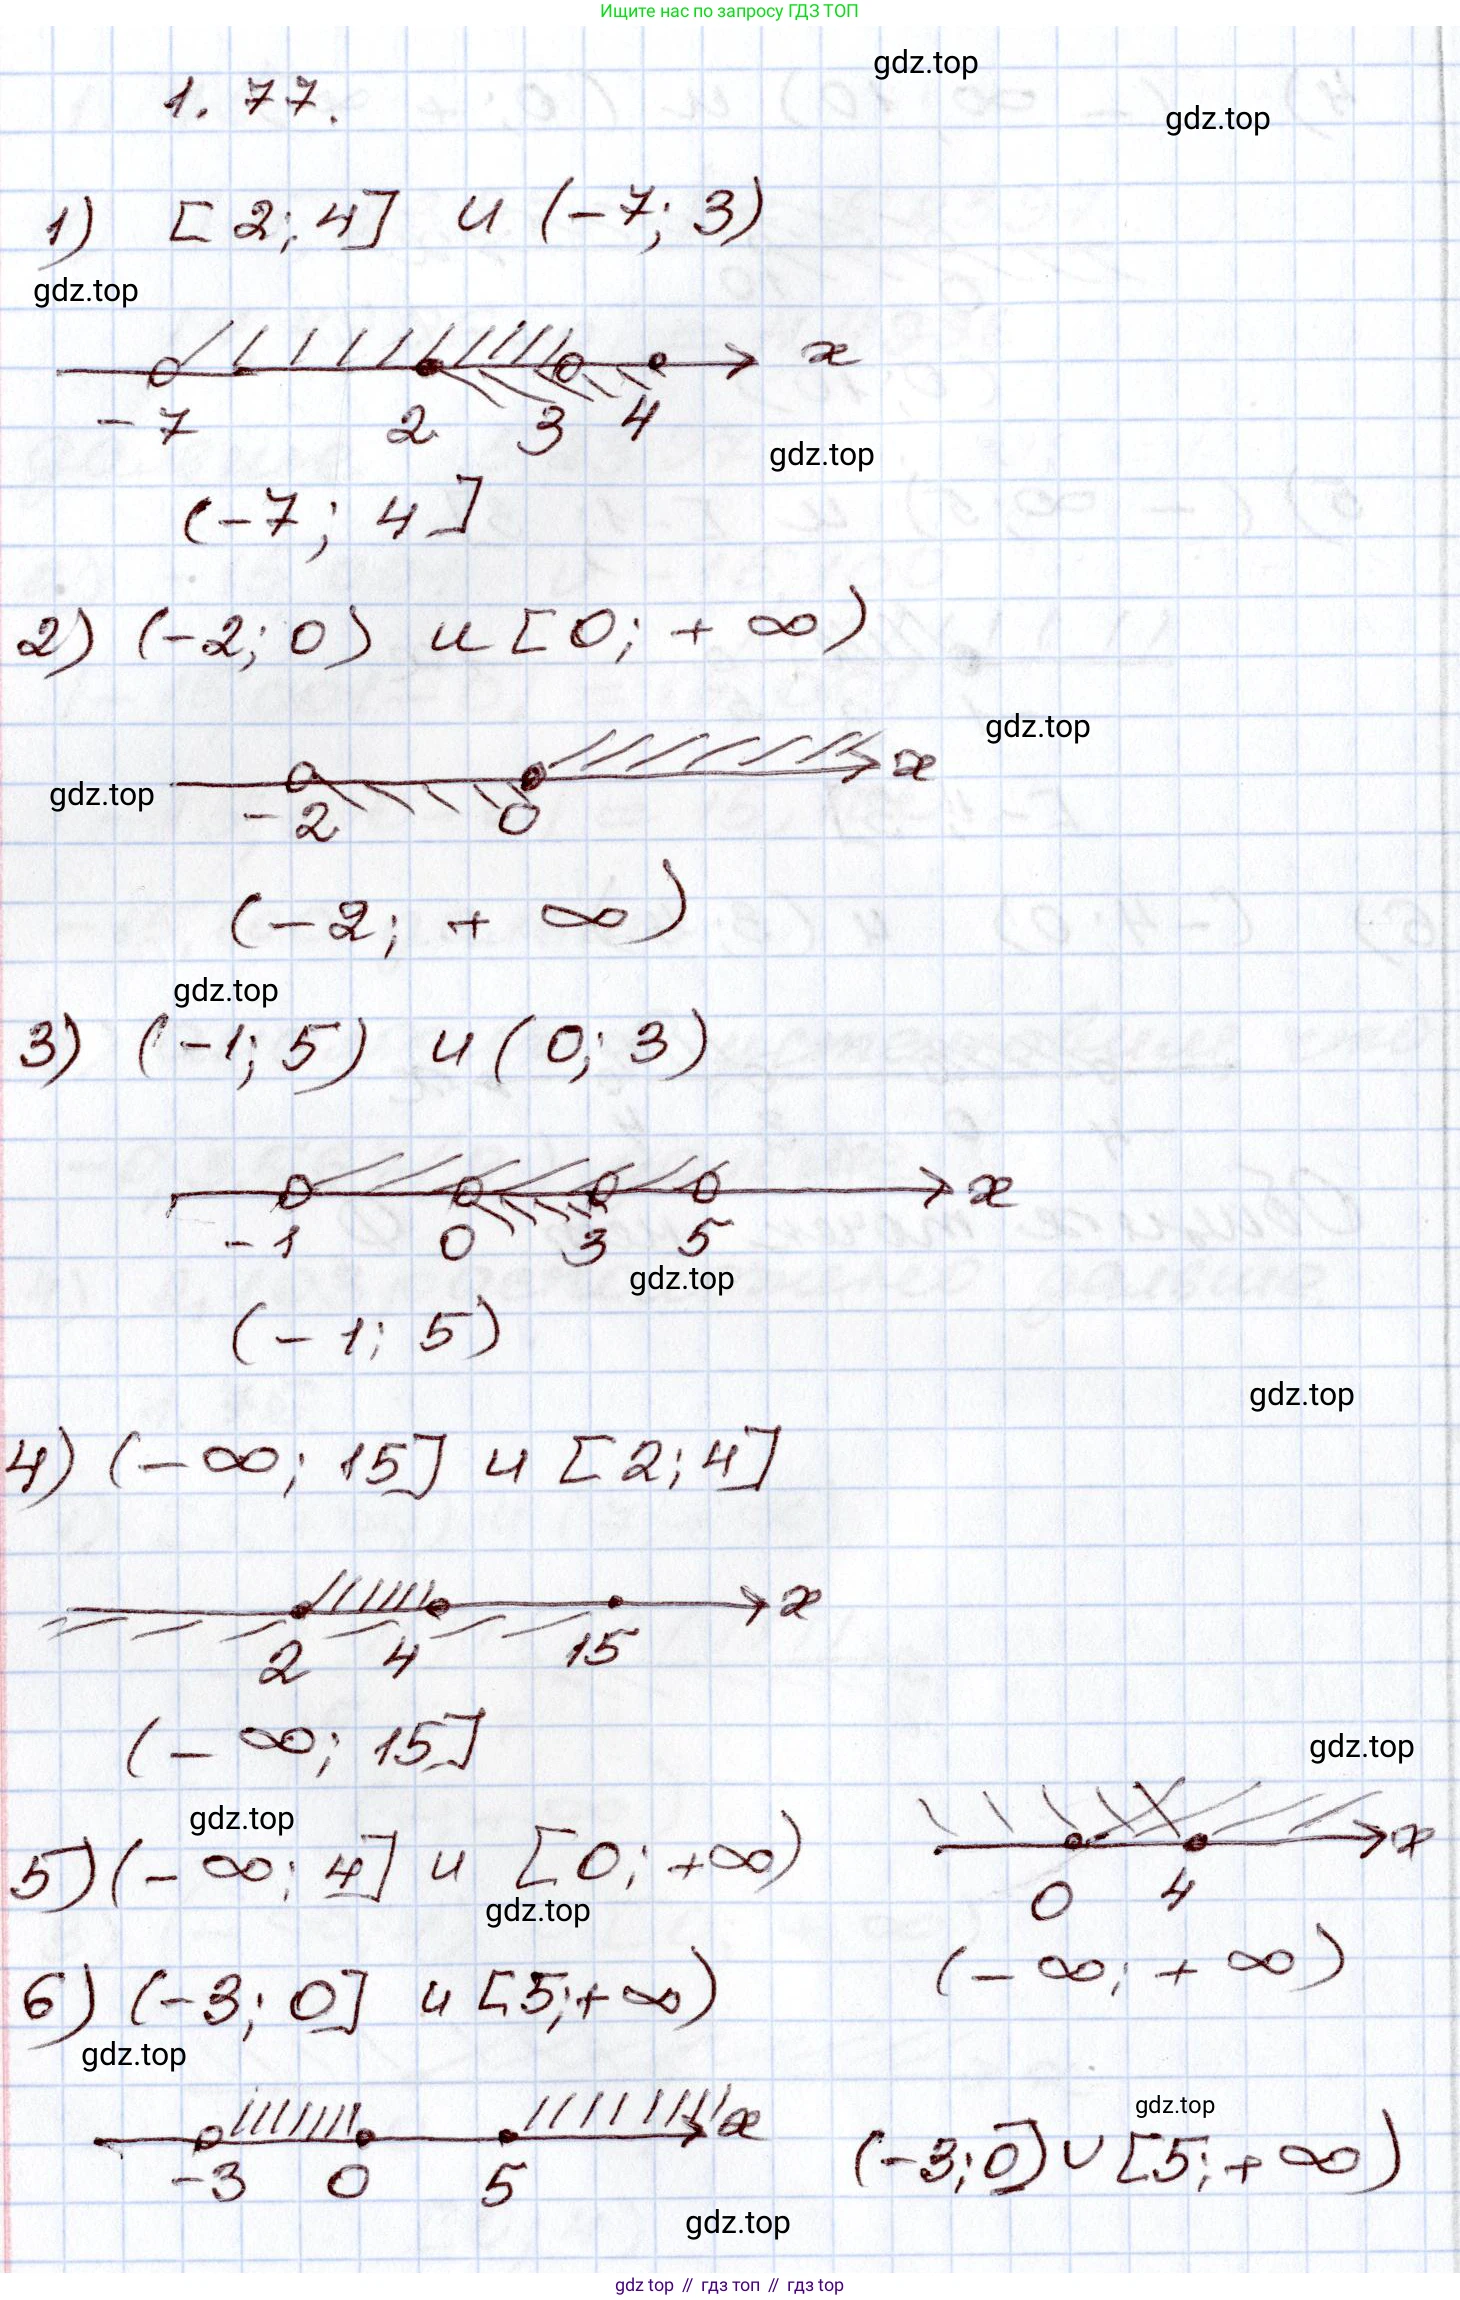 Ищите нас по запросу ГДЗ ТОП
gdz.top
1.77.
gdz.top
1) [2; 4] и (-7; 3)
gdz.top
x
-7 2 3 4
gdz.top
(-7; 4]
2) (-2; 0) и [0; +∞)
gdz.top
x
gdz.top
-2 0
(-2; +∞)
gdz.top
3) (-1; 5) и (0; 3)
x
-1 0 3 5
gdz.top
(-1; 5)
gdz.top
4) (-∞; 15] и [2; 4]
x
2 4 15
(-∞; 15]
gdz.top
gdz.top
5) (-∞; 4] и [0; +∞)
x
0 4
gdz.top
(-∞; +∞)
6) (-3; 0] и [5; +∞)
gdz.top
x
-3 0 5
gdz.top
(-3; 0] ∪ [5; +∞)
gdz.top
gdz top // гдз топ // гдз top